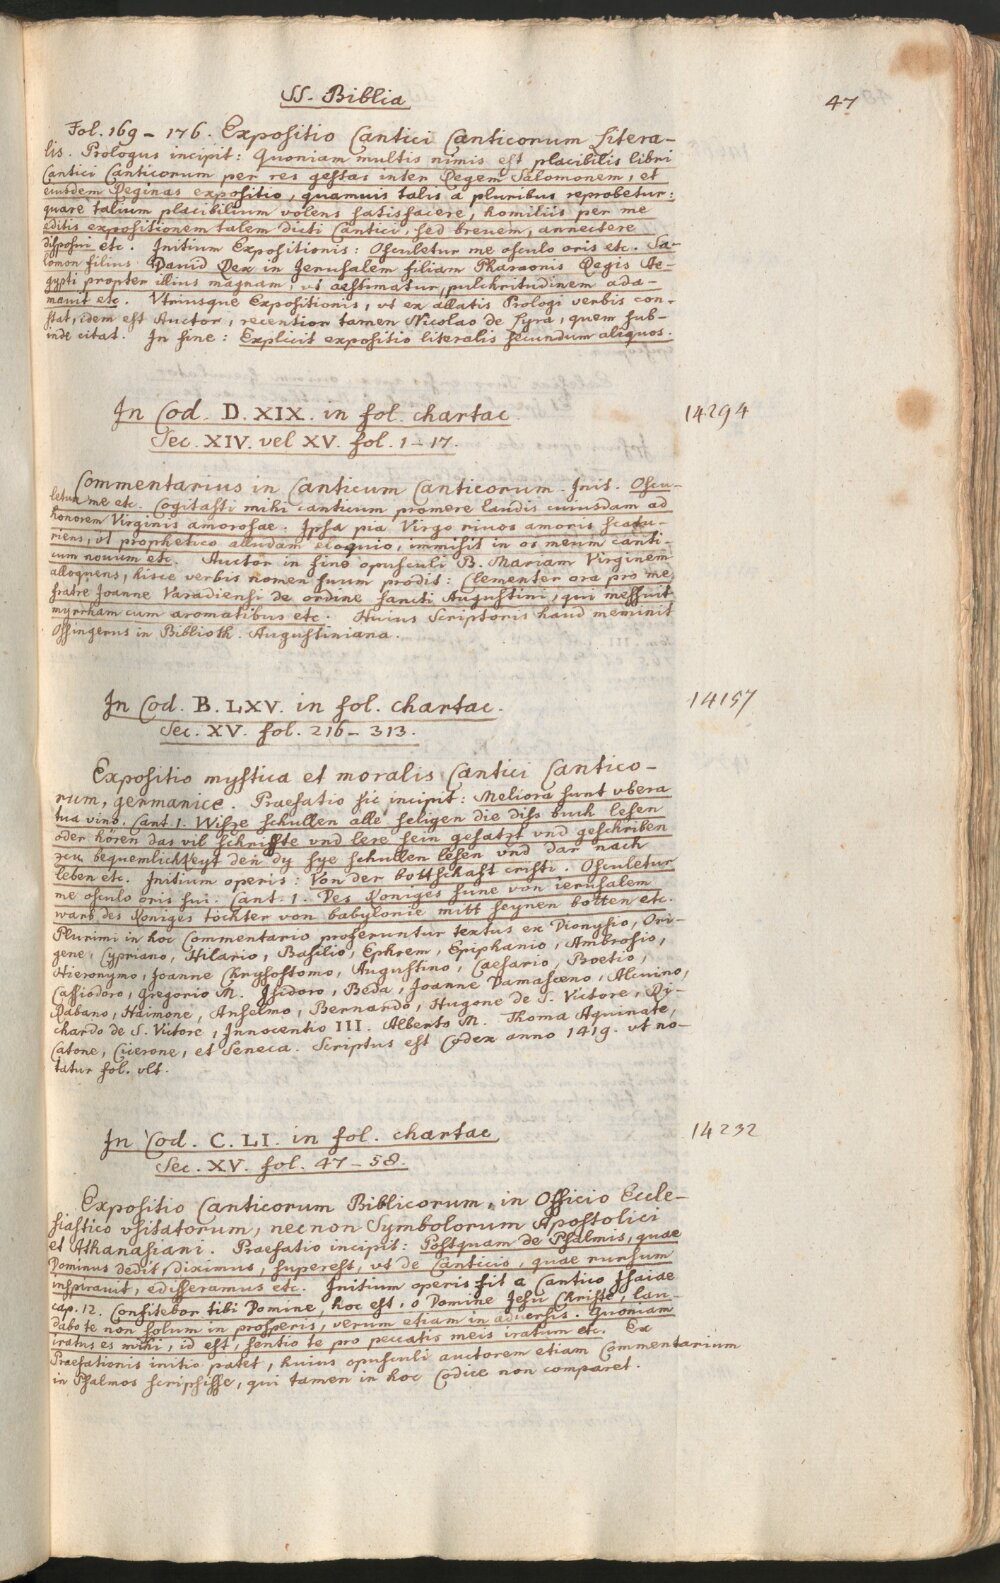 SS. Biblia
47
Fol. 169 – 176. Expositio Cantici Canticorum Litera-
lis. Prologus incipit: Quoniam multis nimis est placibilis libri
Cantici Canticorum per res gestas inter Regem Salomonem, et
eiusdem Reginas expositio, quamuis talis a pluribus reprobetur:
quare talium placibilium volens satisfacere, homiliis per me
editis expositionem talem dicti Cantici, sed breuem, annectere
disposui etc. Initium Expositionis: Osculetur me osculo oris etc. Sa-
lomon filius Dauid Rex in Jerusalem filiam Pharaonis Regis Ae-
gypti propter illius magnam, vt aestimatur, pulchritudinem ada-
mauit etc. Vtriusque Expositionis, vt ex allatis Prologi verbis con-
stat, idem est Auctor, recentior tamen Nicolao de Lyra, quem sub-
inde citat. In fine: Explicit expositio literalis secundum aliquos.
In Cod. D. XIX. in fol. chartac
14294
Sec. XIV. vel XV. fol. 1 – 17.
Commentarius in Canticum Canticorum. Init. Oscu-
letur me etc. Cogitasti mihi canticum promere laudis cuiusdam ad
honorem Virginis amorosae. Ipsa pia Virgo riuos amoris scatu-
riens, vt prophetico alludam eloquio, immisit in os meum canti-
cum nouum etc. Auctor in fine opusculi B. Mariam Virginem
alloquens, hisce verbis nomen suum prodit: Clementer ora pro me
fratre Joanne Varadiensi de ordine sancti Augustini, qui messuit
myrrham cum aromatibus etc. Huius Scriptoris haud meminit
Ossingerus in Biblioth. Augustiniana.
In Cod. B. LXV. in fol. chartac.
14157
Sec. XV. fol. 216 – 313.
Expositio mystica et moralis Cantici Cantico-
rum, germanice. Praefatio sic incipit: Meliora sunt vbera
tua vino. Cant. 1. Wisze schullen alle seligen die diss buch lesen
oder hören das vil schriffte vnd lere sein gesatzt vnd geschriben
zcu bequemlichkeyt den dy sye schullen lesen vnd dar nach
leben etc. Initium operis: Von der bottschaft cristi. Osculetur
me osculo oris sui. Cant. 1. Des Koniges sune von ierusalem
warb des Koniges tochter von babylonie mitt seynen botten etc.
Plurimi in hoc Commentario proferuntur textus ex Dionysio, Ori-
gene, Cypriano, Hilario, Basilio, Ephrem, Epiphanio, Ambrosio,
Hieronymo, Joanne Chrysostomo, Augustino, Caesario, Boetio,
Cassiodoro, Gregorio M. Isidoro, Beda, Joanne Damasceno, Alcuino,
Rabano, Haimone, Anselmo, Bernardo, Hugone de S. Victore, Ri-
chardo de S. Victore, Innocentio III. Alberto M. Thoma Aquinate,
Catone, Cicerone, et Seneca. Scriptus est Codex anno 1419. vt no-
tatur fol. vlt.
In Cod. C. LI. in fol. chartac
14232
Sec. XV. fol. 47 – 58.
Expositio Canticorum Biblicorum, in Officio Eccle-
siastico vsitatorum, necnon Symbolorum Apostolici
et Athanasiani. Praefatio incipit: Postquam de Psalmis, quae
Dominus dedit, diximus, superest, vt de Canticio, quae rursum
inspirauit, edisseramus etc. Initium operis fit a Cantico Isaiae
cap. 12. Confitebor tibi Domine, hoc est, o Domine Jesu Christe, lau-
dabo te non solum in prosperis, verum etiam in aduersis. Quoniam
iratus es mihi, id est, sentio te pro peccatis meis iratum etc. Ex
Praefationis initio patet, huius opusculi auctorem etiam Commentarium
in Psalmos scripsisse, qui tamen in hoc Codice non comparet.